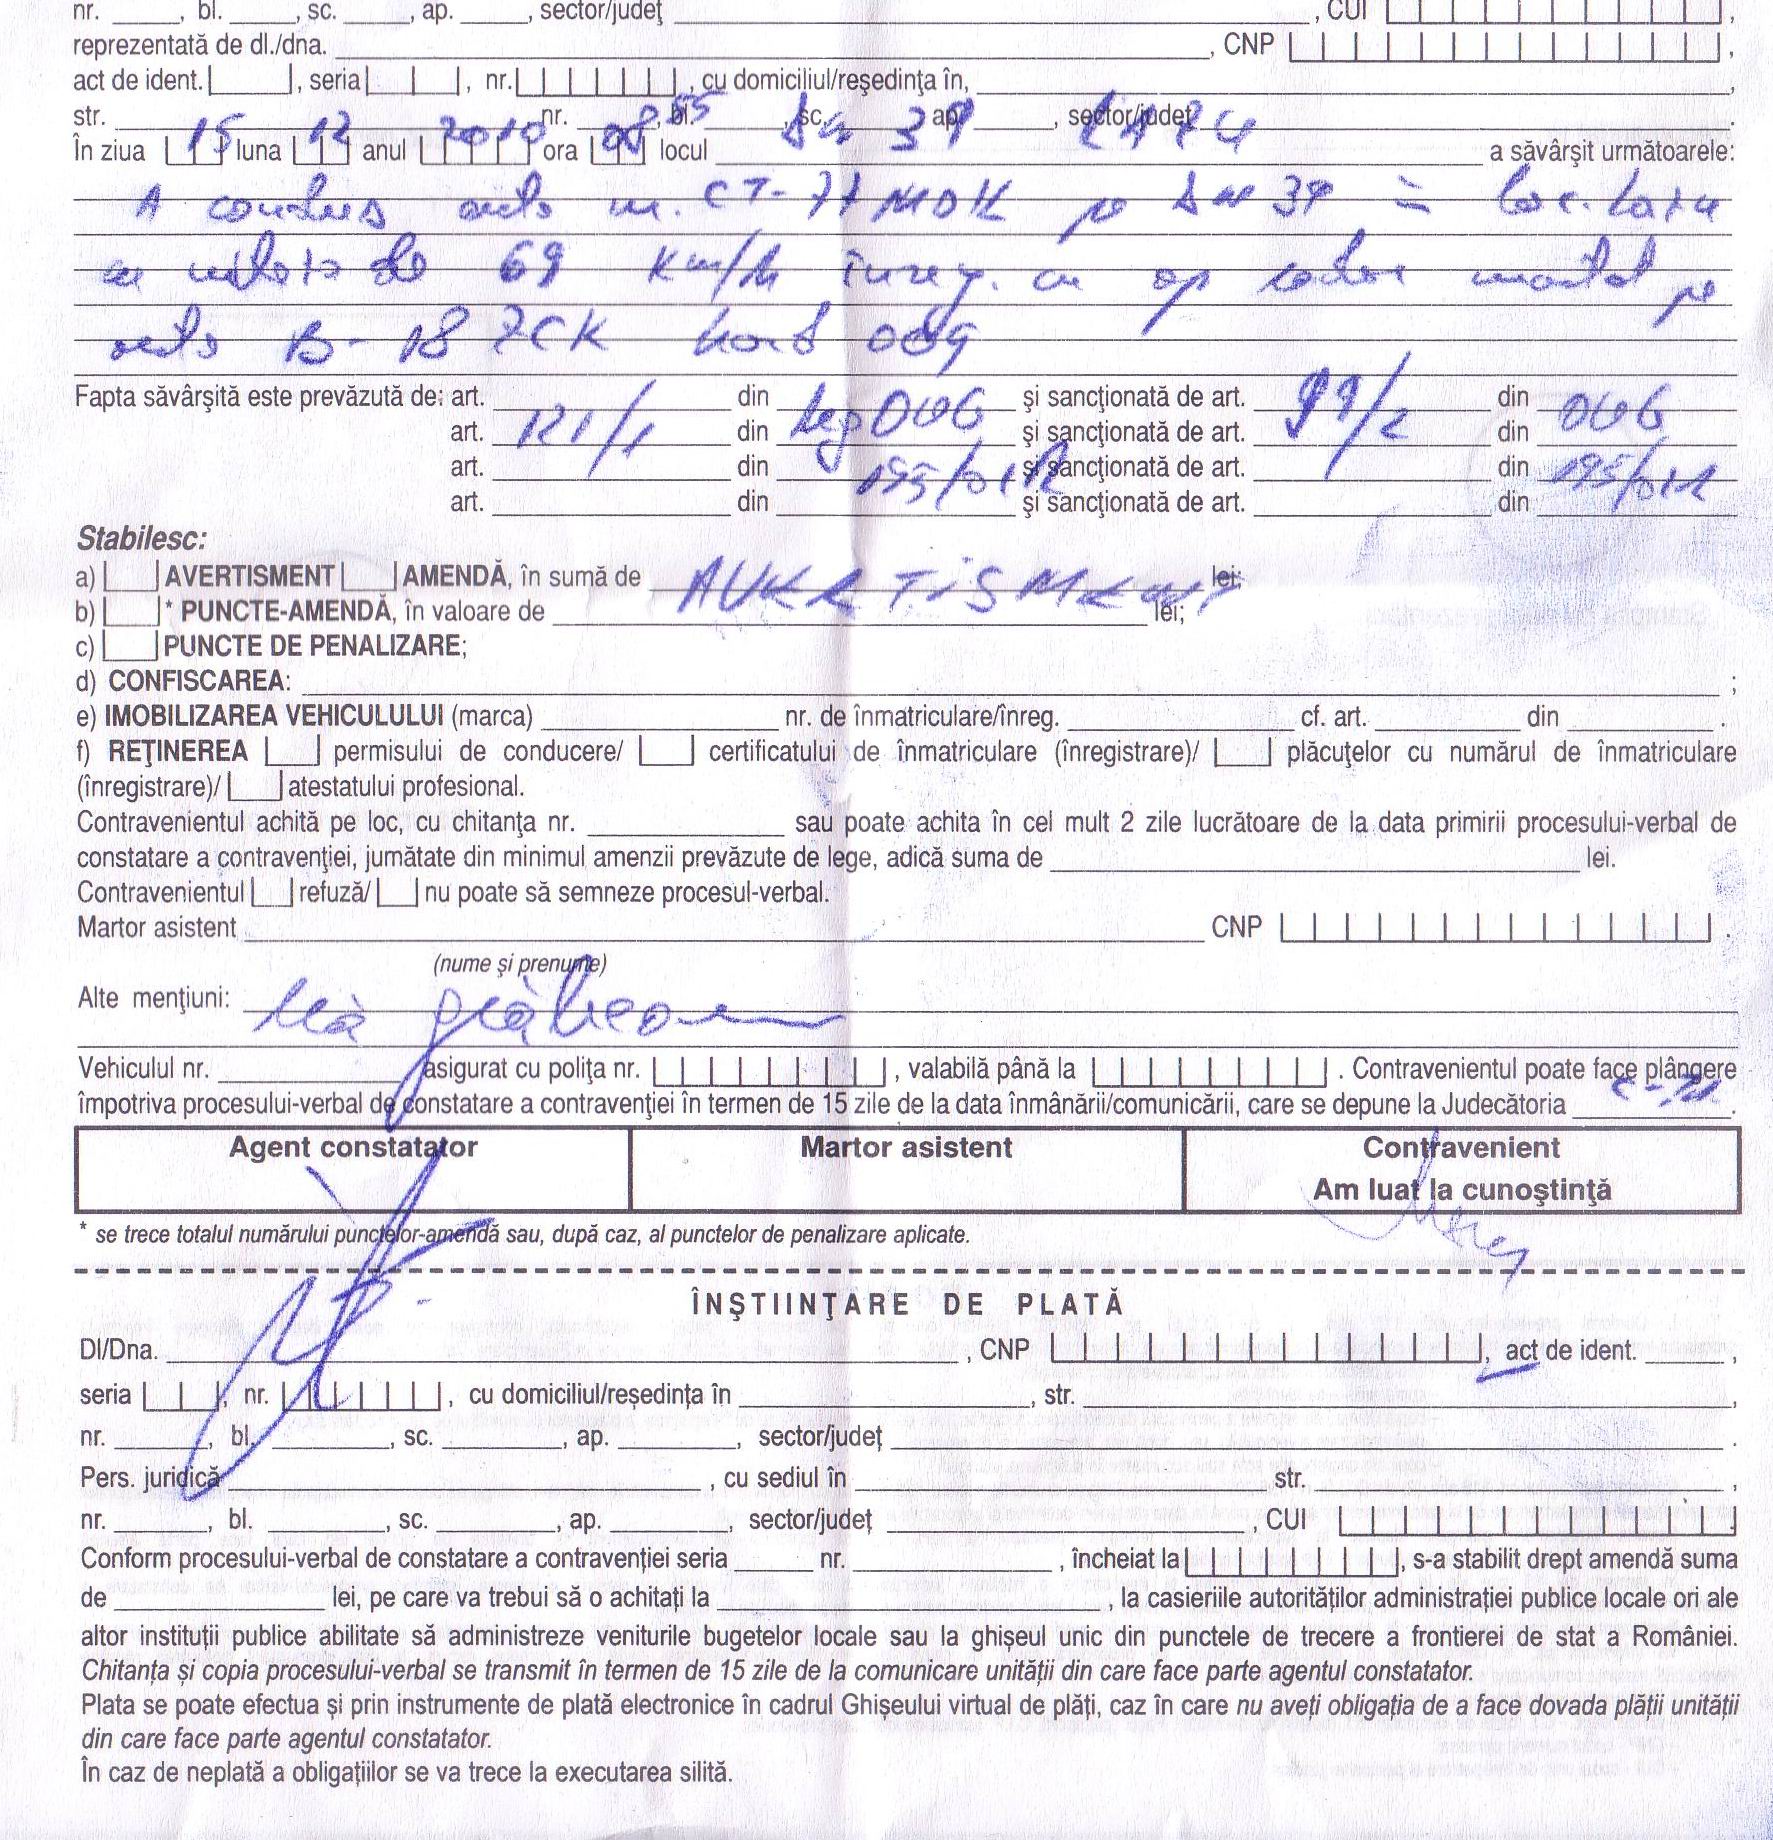 nr. ____, bl. ____, sc. ____, ap. ____, sector/judeţ ____, CUI
reprezentată de dl./dna. ____, CNP ____,
act de ident. ____, seria ____, nr. ____, cu domiciliul/reşedinţa în, ____,
str. ____ nr. ____, bl. ____, sc. ____ ap. ____, sector/judeţ ____.
În ziua 15 luna 12 anul 2010 ora 08 55 locul DN 39 a săvârşit următoarele:
A condus auto nr. CT-71 MDK pe DN 39 =
cu de 69 km/h înreg. cu ap radar montat pe
auto B-18 009
Fapta săvârşită este prevăzută de: art. ____ din ____ şi sancţionată de art. ____ din ____
art. 121/1 din Reg OUG şi sancţionată de art. 99/2 din OUG
art. ____ din 195/01R şi sancţionată de art. ____ din 195/01R
art. ____ din ____ şi sancţionată de art. ____ din ____
Stabilesc:
a) AVERTISMENT AMENDĂ, în sumă de AVERTISMENT lei;
b) * PUNCTE-AMENDĂ, în valoare de ____ lei;
c) PUNCTE DE PENALIZARE;
d) CONFISCAREA: ____;
e) IMOBILIZAREA VEHICULULUI (marca) ____ nr. de înmatriculare/înreg. ____ cf. art. ____ din ____.
f) REŢINEREA permisului de conducere/ certificatului de înmatriculare (înregistrare)/ plăcuţelor cu numărul de înmatriculare
(înregistrare)/ atestatului profesional.
Contravenientul achită pe loc, cu chitanţa nr. ____ sau poate achita în cel mult 2 zile lucrătoare de la data primirii procesului-verbal de
constatare a contravenţiei, jumătate din minimul amenzii prevăzute de lege, adică suma de ____ lei.
Contravenientul refuză/ nu poate să semneze procesul-verbal.
Martor asistent ____ CNP ____.
(nume şi prenume)
Alte menţiuni: Mă grăbeam
Vehiculul nr. ____ asigurat cu poliţa nr. ____, valabilă până la ____. Contravenientul poate face plângere
împotriva procesului-verbal de constatare a contravenţiei în termen de 15 zile de la data înmânării/comunicării, care se depune la Judecătoria ____.
Agent constatator Martor asistent Contravenient
Am luat la cunoştinţă
* se trece totalul numărului punctelor-amendă sau, după caz, al punctelor de penalizare aplicate.
ÎNŞTIINŢARE DE PLATĂ
Dl/Dna. ____, CNP ____, act de ident. ____,
seria ____, nr. ____, cu domiciliul/reşedinţa în ____, str. ____,
nr. ____, bl. ____, sc. ____, ap. ____, sector/judeţ ____.
Pers. juridică ____, cu sediul în ____ str. ____,
nr. ____, bl. ____, sc. ____, ap. ____, sector/judeţ ____, CUI ____
Conform procesului-verbal de constatare a contravenţiei seria ____ nr. ____, încheiat la ____, s-a stabilit drept amendă suma
de ____ lei, pe care va trebui să o achitaţi la ____, la casieriile autorităţilor administraţiei publice locale ori ale
altor instituţii publice abilitate să administreze veniturile bugetelor locale sau la ghişeul unic din punctele de trecere a frontierei de stat a României.
Chitanţa şi copia procesului-verbal se transmit în termen de 15 zile de la comunicare unităţii din care face parte agentul constatator.
Plata se poate efectua şi prin instrumente de plată electronice în cadrul Ghişeului virtual de plăţi, caz în care nu aveţi obligaţia de a face dovada plăţii unităţii
din care face parte agentul constatator.
În caz de neplată a obligaţiilor se va trece la executarea silită.